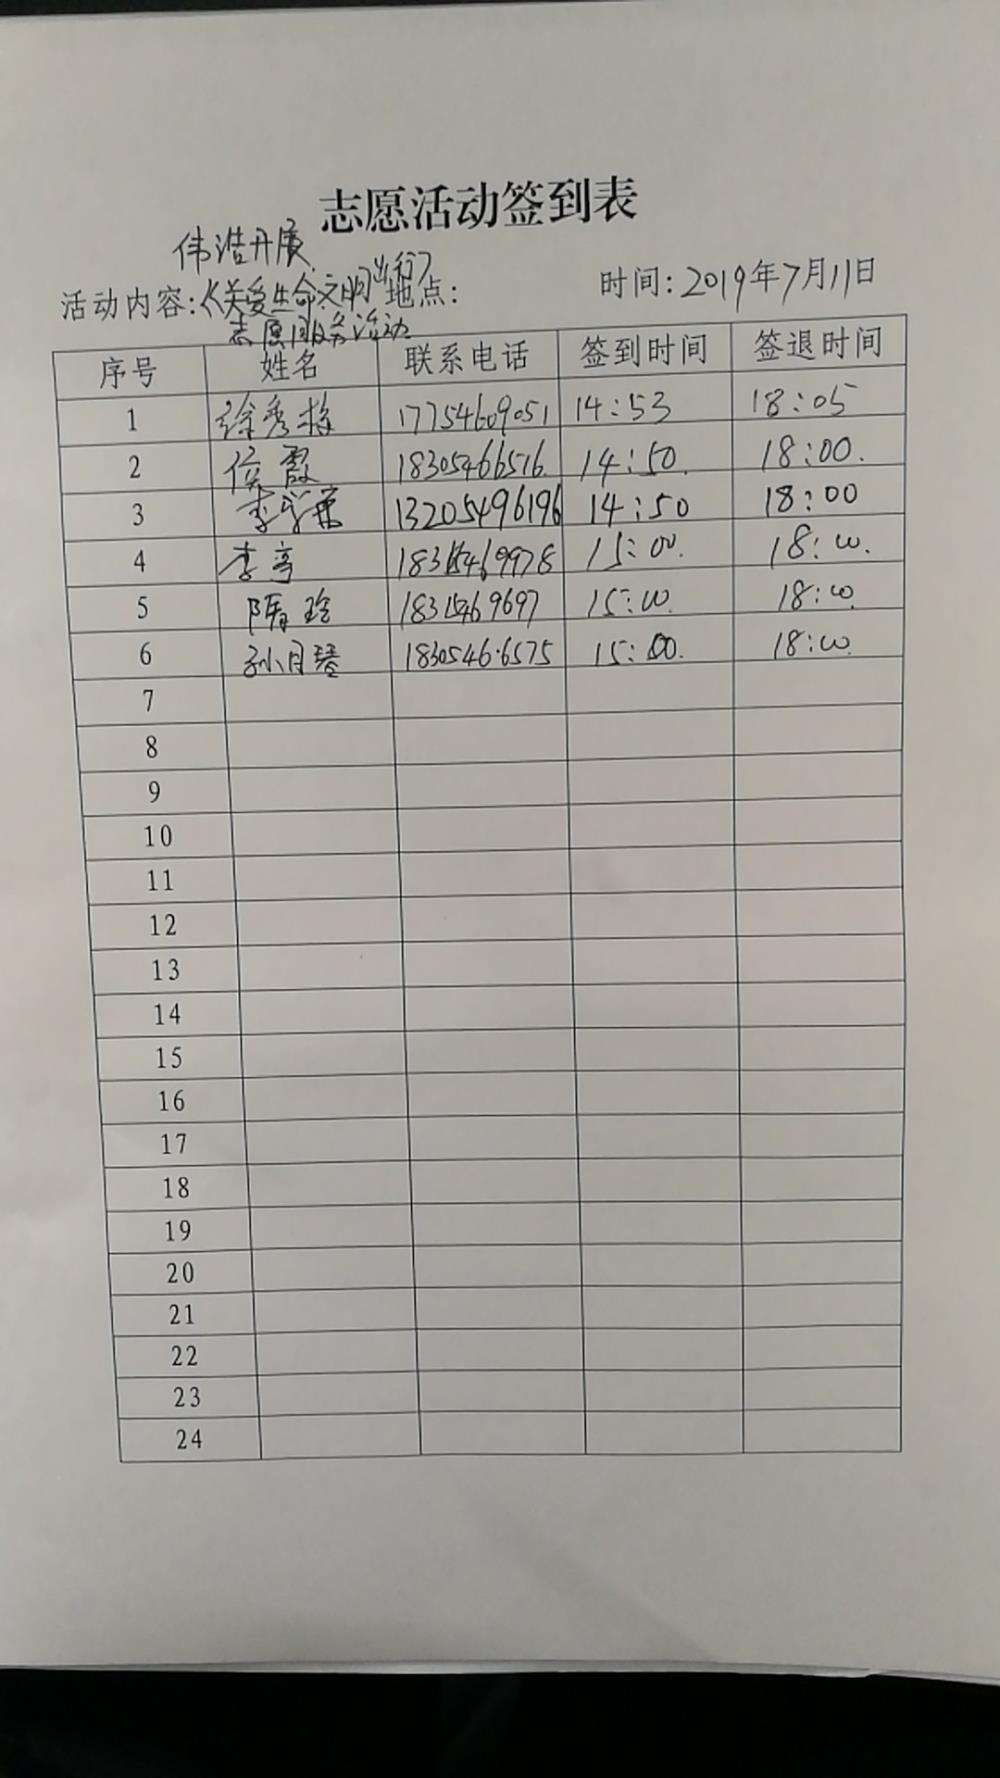 志愿活动签到表
伟浩开展
活动内容:《关爱生命文明出行》地点: 时间:2019年7月11日
志愿服务活动
序号 姓名 联系电话 签到时间 签退时间
1 徐秀梅 17754609051 14:53 18:05
2 侯霞 18305466516 14:50. 18:00.
3 李 13205496196 14:50 18:00
4 李 15:00. 18:00.
5 隋玲 15:00. 18:00.
6 孙月琴 1830546·6575 15:00. 18:00.
7
8
9
10
11
12
13
14
15
16
17
18
19
20
21
22
23
24